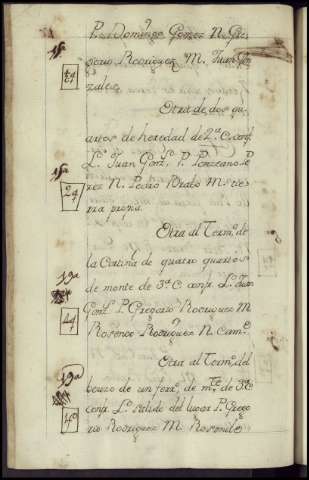 P. Domingo Gomez N. Gre
gorio Rodriguez M. Juan Gon
zalez
Otra de dos qu
artos de heredad de 2ª C. conf
L. Juan Gonz. P. Ponzeano Pe
rez N. Pedro Prado M. tie
rra propia
Otra al Term.º de
la Cortina de quatro quartos
de monte de 3ª C. conf. L. Juan
Gonz. P. Gregorio Rodriguez M.
Rosendo Rodriguez N. Cam.º
Otra al Term.º del
bouzo de un ferr.º de m.te de 3ª C
conf. L. Salido del lugar P. Grego
rio Rodriguez M. Rosendo